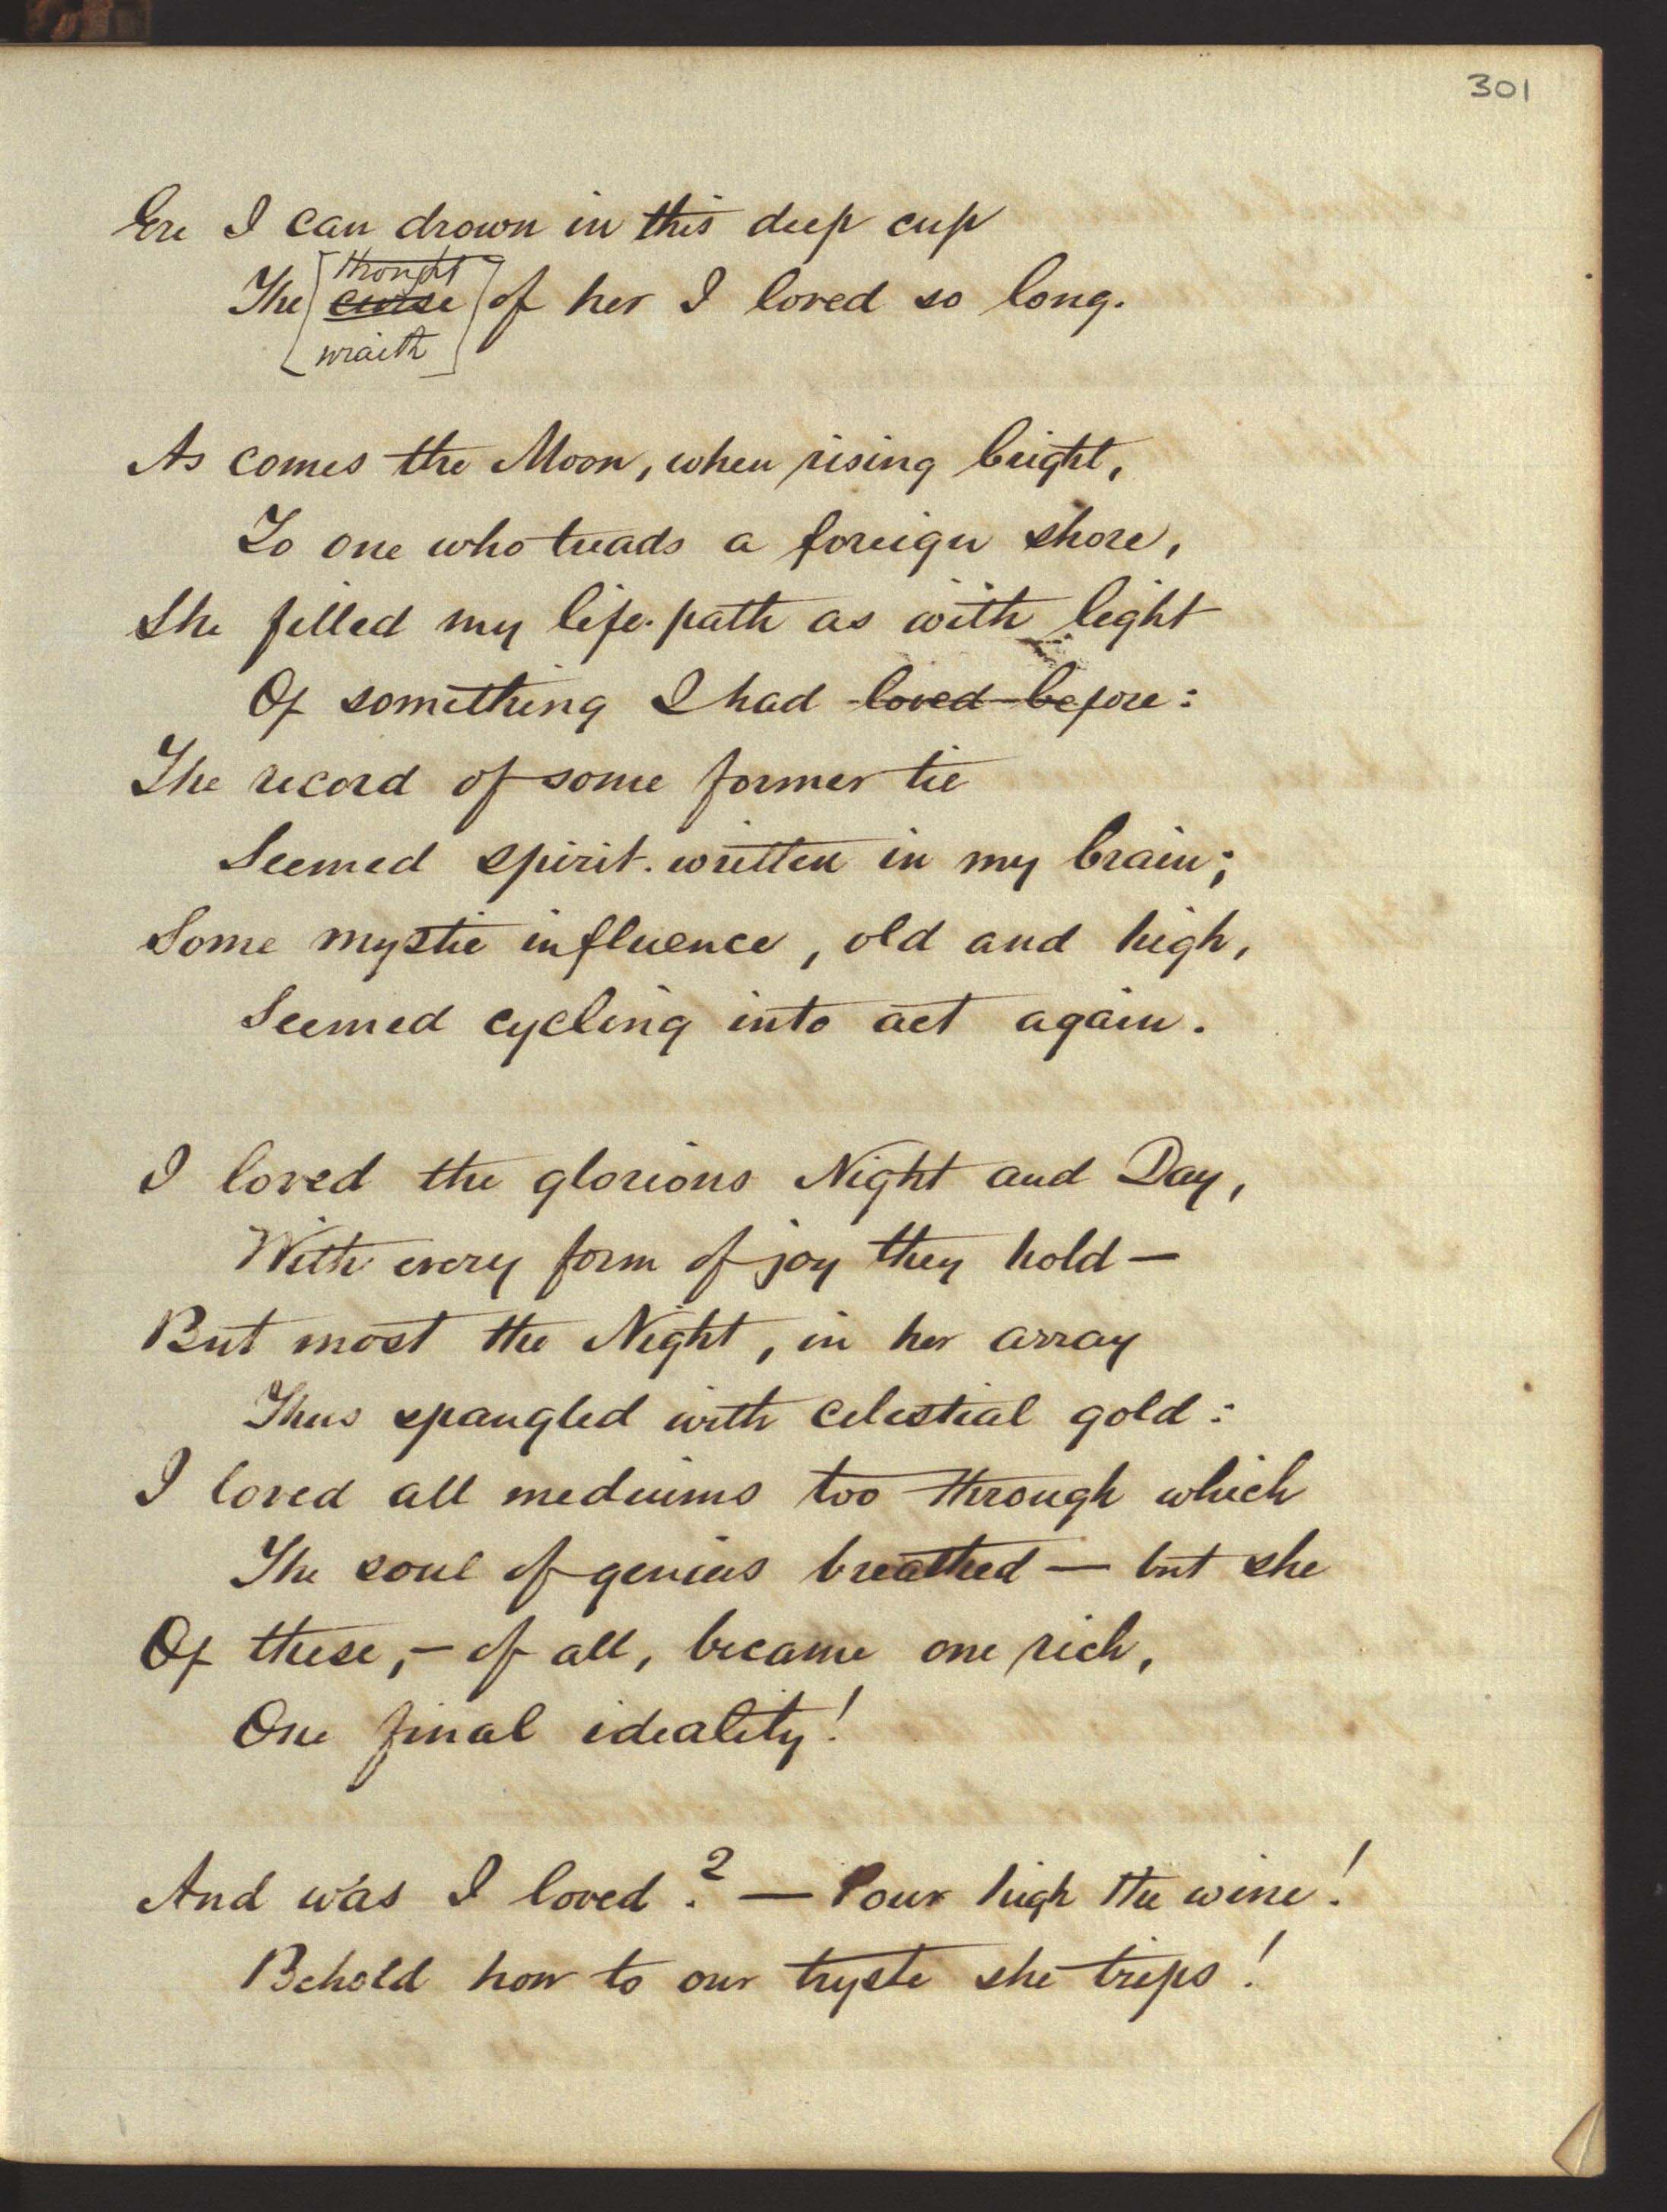 301
Ere I can drown in this deep cup
thought
The curse of her I loved so long.
wraith
As comes the Moon, when rising bright,
To one who treads a foreign shore,
She filled my life-path as with light
Of something I had loved before:
The record of some former tie
Seemed spirit-written in my brain;
Some mystic influence, old and high,
Seemed cycling into act again.
I loved the glorious Night and Day,
With every form of joy they hold —
But most the Night, in her array
Thus spangled with celestial gold:
I loved all mediums too through which
The soul of genius breathed — but she
Of these, — of all, became one rich,
One final ideality!
And was I loved? — Pour high the wine!
Behold how to our tryste she trips!